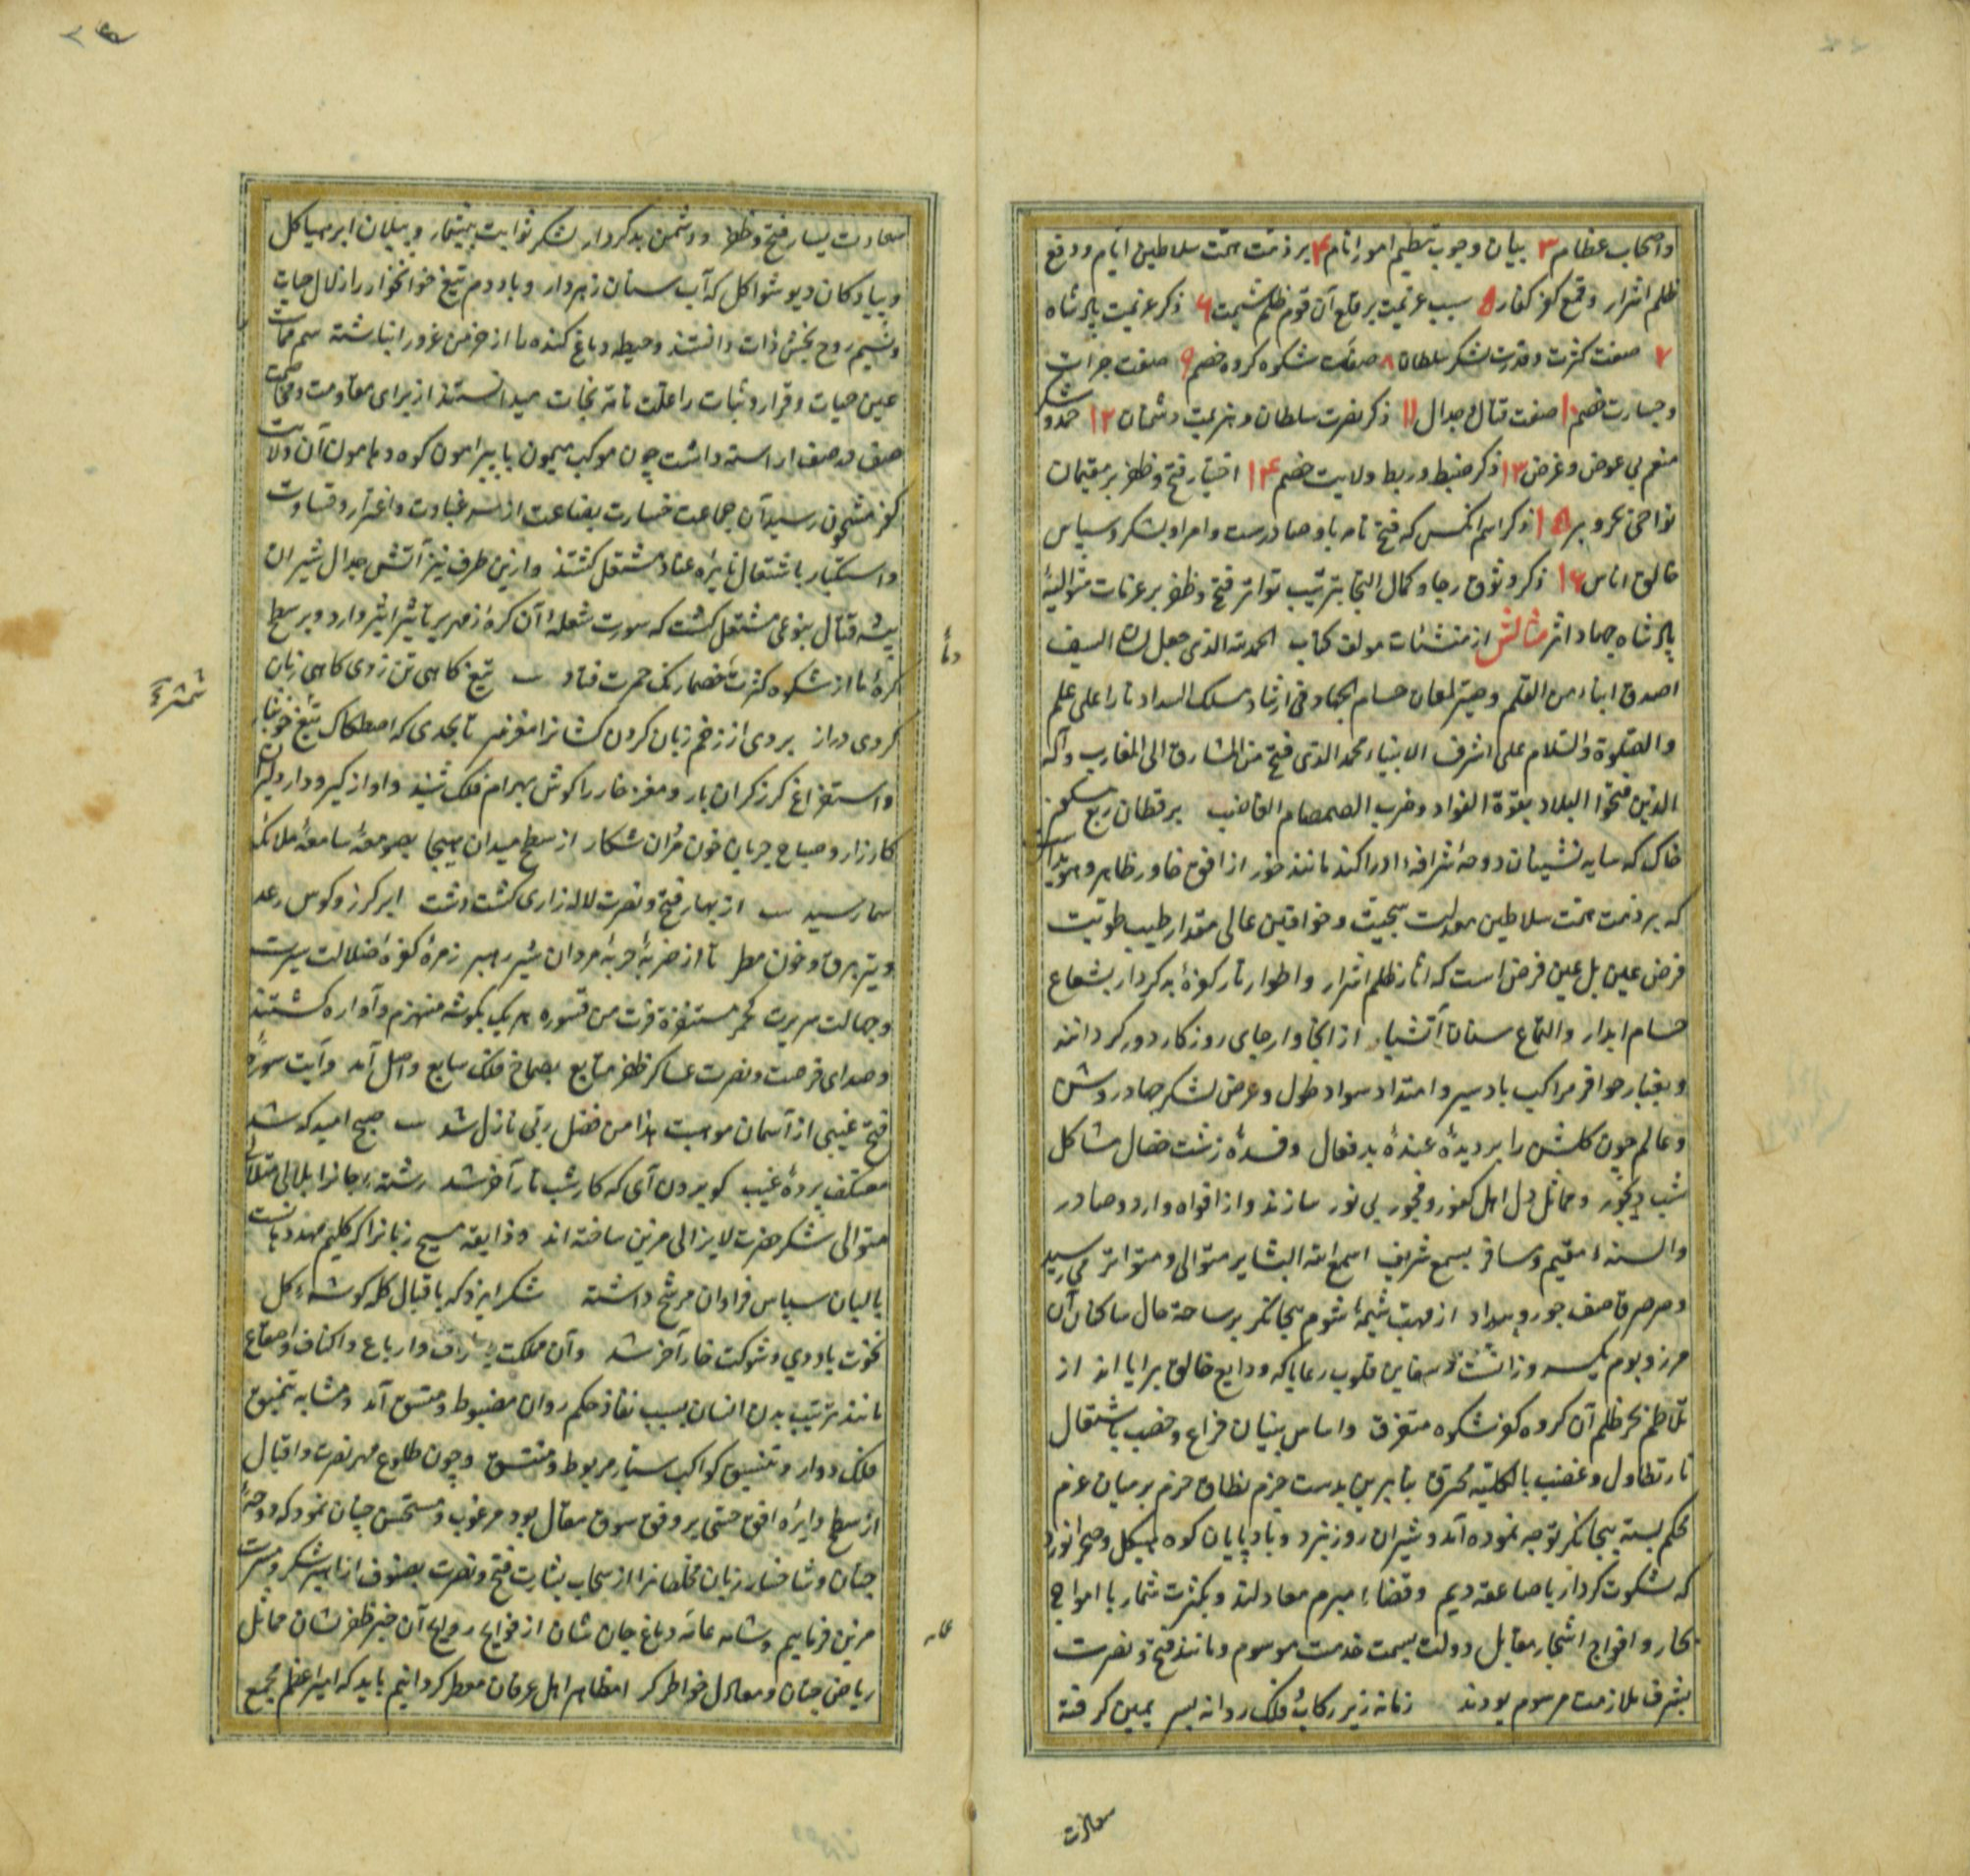 واصحاب عظام ۳ بیان وجوب تنظیم امور انام ۴ بر ذمت همت سلاطین ایام و دفع
ظلم اشرار و قمع کفر کفار ۵ سبب عزیمت بر قلع آن قوم ظلم شیمت ۶ ذکر عزیمت پادشاه
۷ صفت کثرت و قدرت لشکر سلطان ۸ صفت شکوه کروه خصم ۹ صفت جرات
و جسارت خصم ۱۰ صفت قتال و جدال ۱۱ ذکر نصرت سلطان و هزیمت دشمنان ۱۲ حمد و شکر
منعم بی عوض و غرض ۱۳ ذکر ضبط و ربط ولایت خصم ۱۴ اخبار فتح و ظفر بر مقیمان
نواحی بحر و بر ۱۵ ذکر اسم انکس که فتح نامه باو صادرست و امر او بشکر و سپاس
خالق اناس ۱۶ ذکر وثوق رجا و کمال التجا بترتیب تواتر فتح و ظفر بر عزمات متوالیهٔ
پادشاه جهاد اثر مثالش از منشئات مولف کتاب الحمد لله الذی جعل لسان السیف
اصدق انباء من القلم و صیر لمعان حسام الجهاد فی ارشاد مسلک السداد نارا علی علم
والصلوة والسلام علی اشرف الانبیاء محمد الذی فتح من المشارق الی المغارب وآله
الذین فتحوا البلاد بقوة الفواد وضرب الصمصام القاضب بر قطان ربع مسکون
خاک که سایه نشینان دوحهٔ اشرافهٔ ادراکند مانند خور از افق خاور ظاهر و هویدا
که بر ذمت همت سلاطین معدلت سجیت و خواقین عالی مقدار طیب طویت
فرض عین بل عین فرض است که آثار ظلم اشرار و اطوار تار کفرهٔ بدکردار بشعاع
حسام ابدار والتماع سنان آتشبار از انحا و ارجای روزکار دور کردانند
و بغبار حوافر مراکب بادسیر و امتداد سواد طول و عرض لشکر جهاد روشن
و عالم چون کلشن را بر دیدهٔ عندهٔ بدفعال و فسدهٔ زشت خصال مشاکل
شب دیجور و مماثل دل اهل کفر و فجور بی نور سازند و از افواه وارد و صادر
والسنهٔ مقیم و مسافر بسمع شریف اسمع الله البشایر متوالی و متواتر می رسید
و صرصر قاصف جور و بیداد از مهب شیمهٔ شوم بیجانکر بر ساحة حال ساکنان آن
مرز و بوم یکسر وزانست و سفاین قلوب رعایا که ودایع خالق برایا اند از
تلاطم بحر ظلم آن کروه کفر شکوه متفرق و اساس بنیان فراغ و خصب باشتعال
نار تطاول و غضب بالکلیه محرق بنابرین بدست جزم نطاق حزم بر میان عزم
محکم بسته بیجانکر توجه نموده آمد و شیران روز نبرد و بادپایان کوه هیکل و صحرا نورد
که بشکوت کردار با صاعقه دیم و قضاء مبرم معادلند و بکثرت شمار با امواج
بحار و افواج اشجار مقابل دولت بسمت خدمت موسوم و مانند فتح و نصرت
بشرف ملازمت مرسوم بودند زمانه زیر رکاب و فلک روانه بسر یمین کرفته
سعادت
سعادت یسار فتح و ظفر و دشمن بدکردار لشکر ثوابت بیشمار و پیلان ابر هیاکل
و پیادکان دیو شواکل که آب سنان زهردار و باد دم تیغ خوانخوار را زلال حیات
و نسیم روح بخش ذات دانستند و حیطه دماغ کنده ما از خرمن غرور انباشته سم ممات
عین حیات و قرار و ثبات را علت تامه نجات میدانستند از برای مقاومت و مخاصمت
صف در صف اراسته داشت چون موکب میمون با پیرامون کوه و هامون آن ولایت
کفر مشحون رسید آن جماعت خسارت بضاعت از سر غباوت و اغترار و قساوت
و استکبار باشتعال نایرهٔ عناد مشتغل کشتند و ازین طرف نیز آتش جدال شیران
بیشهٔ قتال بنوعی مشتعل کشت که سورت شعلهٔ آن کرهٔ زمهریر تاثیر اثیر دارد و بر سطح
کرهٔ ما از شکوه کثرت خصما رنک حمرت فتاد تیغ کاهی تن زدی کاهی زبان
کردی دراز بر وی از زخم زبان کردن کشانرا مغفر تا بحدی که اصطکاک تیغ خونبار
و استفراغ کرز کران بار و مغز خار را کوش بهرام فلک شنید و اواز کیرودار دلیران
کارزار و صباح جریان خون مران شکار از سطح میدان هیجا بصومعهٔ سامعهٔ ملائکه
سما رسید از بهار فتح و نصرت لاله زاری کشت دشت ابر کرز و کوس رعد
و تیر برق و خون مطر تا از ضربهٔ حربهٔ مردان شیر رهبر زمرهٔ کفرهٔ ضلالت سیرت
و جهالت سریرت کحمر مستنفرة فرت من قسوره هر یک بکوشه منهزم و آواره کشتند
و صدای فرصت و نصرت عساکر ظفر متابع بصماخ فلک سابع واصل آمد و آیت سوره
فتح غیبی از آسمان موهبت هذا من فضل ربی نازل شد صبح امید که شد
معتکف پردهٔ غیب کو برون آی که کار شب تار آخر شد رشته رجا را بلالی متلألی
متوالی شکر حضرت لایزالی مزین ساخته اند و ذایقه مسیح زبانرا که کلیم مهد دهانست
بالبان سپاس فراوان مرشح داشته شکر ایزد که باقبال کله کوشهٔ کل
نخوت باد دی و شوکت خار آخر شد و آن مملکت باشراف و ارباع و اکناف و اصقاع
مانند ترتیب بدن انسان بسبب نفاذ حکم روان مضبوط و متسق آمد و مشابه تنمیق
فلک دوار و تنسیق کواکب سیار مربوط و منتسق و چون طلوع مهر نصرت و اقبال
از سطح دایره افق حسی بر وفق سوق مقال بود مرغوب و مستحسن چنان نمود که دوحهٔ
جنان و شاخسار زبان مخلصانرا از سحاب بشارت فتح و نصرت بصنوف ازاهیر شکر و مسرت
مزین فرماییم و مشامه عامه دماغ جان شان از فوایح روایح آن خبر ظفر نشان مماثل
ریاض جنان و معادل خواطر کر امظاهر اهل عرفان معطر کردانیم باید که امیر اعظم مجمع